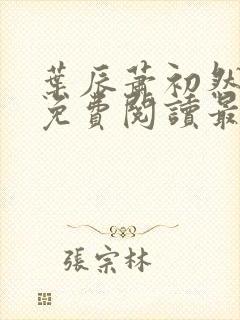 葉辰蕭初然
免費閱讀最
張宗林